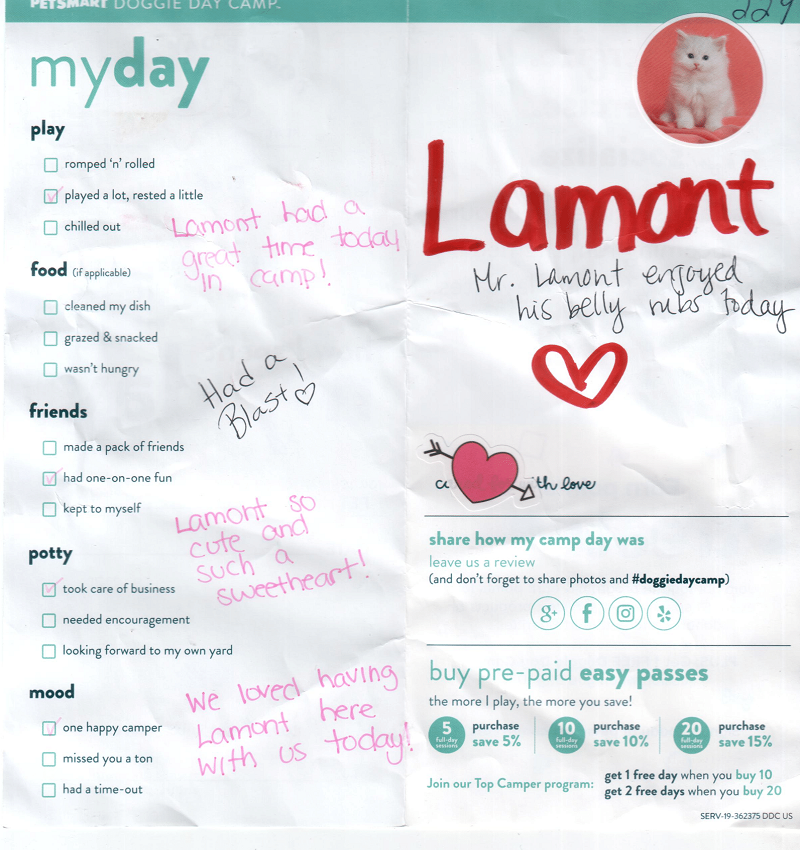 PETSMART DOGGIE DAY CAMP.
229
myday
play
romped 'n' rolled
played a lot, rested a little
chilled out
Lamont had a
great time today
in camp!
food (if applicable)
cleaned my dish
grazed & snacked
wasn't hungry
Had a
Blast!
friends
made a pack of friends
had one-on-one fun
kept to myself
Lamont so
cute and
such a
sweetheart!
potty
took care of business
needed encouragement
looking forward to my own yard
mood
one happy camper
missed you a ton
had a time-out
We loved having
Lamont here
with us today!
Lamont
Mr. Lamont enjoyed
his belly rubs today
love
share how my camp day was
leave us a review
(and don't forget to share photos and #doggiedaycamp)
g+ f
buy pre-paid easy passes
the more I play, the more you save!
5 full-day sessions purchase save 5%
10 full-day sessions purchase save 10%
20 full-day sessions purchase save 15%
Join our Top Camper program: get 1 free day when you buy 10
get 2 free days when you buy 20
SERV-19-362375 DDC US